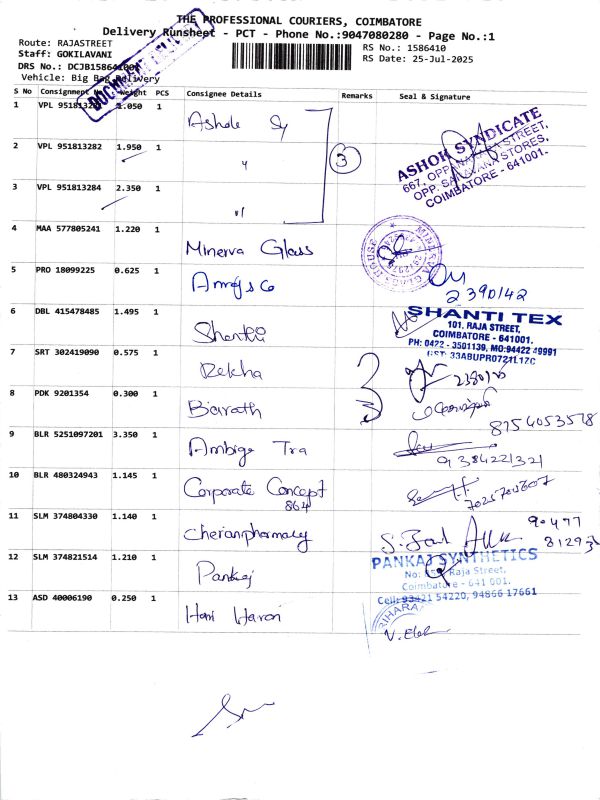 THE PROFESSIONAL COURIERS, COIMBATORE
Delivery Runsheet - PCT - Phone No.:9047080280 - Page No.:1
Route: RAJASTREET
RS No.: 1586410
Staff: GOKILAVANI
RS Date: 25-Jul-2025
DRS No.:
Vehicle: Big Bag Delivery
S No Consignment Weight PCS Consignee Details Remarks Seal & Signature
1 VPL 1.050 1 Ashok Sy
2 VPL 951813282 1.950 1 "
3
3 VPL 951813284 2.350 1 "
ASHOK SYNDICATE
667, OPP. STREET,
OPP. STORES,
COIMBATORE - 641001.
4 MAA 577805241 1.220 1 Minerva Glass
MINERVA GLASS HOUSE
5 PRO 18099225 0.625 1
2390142
6 DBL 415478485 1.495 1 Shanthi
SHANTI TEX
101, RAJA STREET,
COIMBATORE - 641001.
PH: 0422 - 3501139, MO:94422 49991
GST: 33ABUPR0721L1ZC
7 SRT 302419090 0.575 1 Rekha
8 PDK 9201354 0.300 1 Barath
8754053578
9 BLR 5251097201 3.350 1 Ambiga Tra
9384221321
10 BLR 480324943 1.145 1 Corporate Concept
864
11 SLM 374804330 1.140 1 Cherianpharmacy
90477
12 SLM 374821514 1.210 1 Pankaj
PANKAJ SYNTHETICS
No: Raja Street,
Coimbatore - 641 001.
Cell: 93421 54220, 94866 17661
13 ASD 40006190 0.250 1 Hari Haran